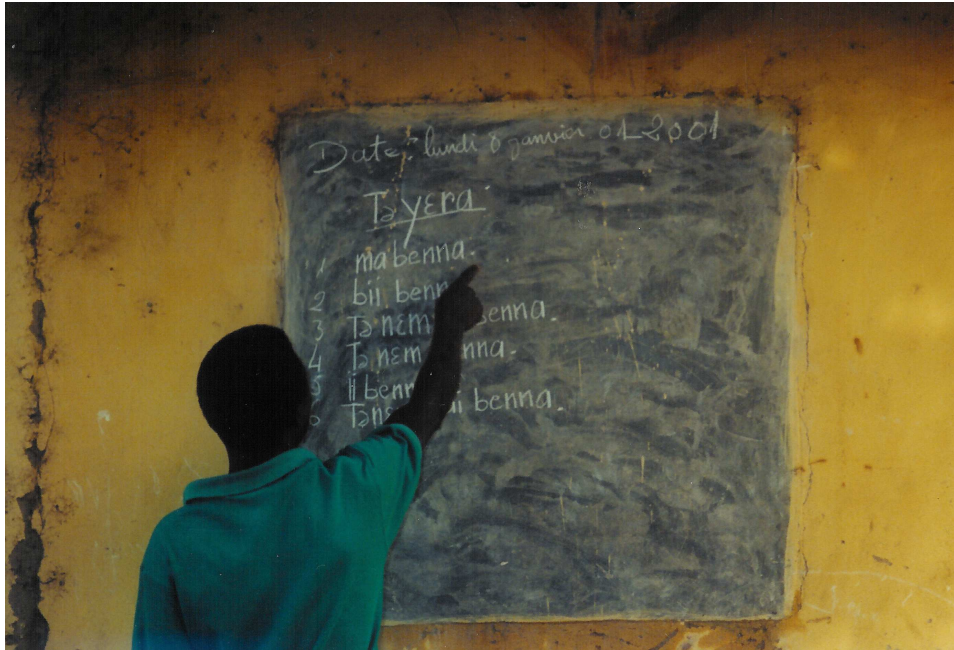 Date: lundi 8 janvier 01 2001
Tǝ yɛra
1 ma benna.
2 bii benn
3 Tǝ nɛm benna.
4 Tǝ nɛm nna.
5 li benn
6 Tǝ nɛ benna.